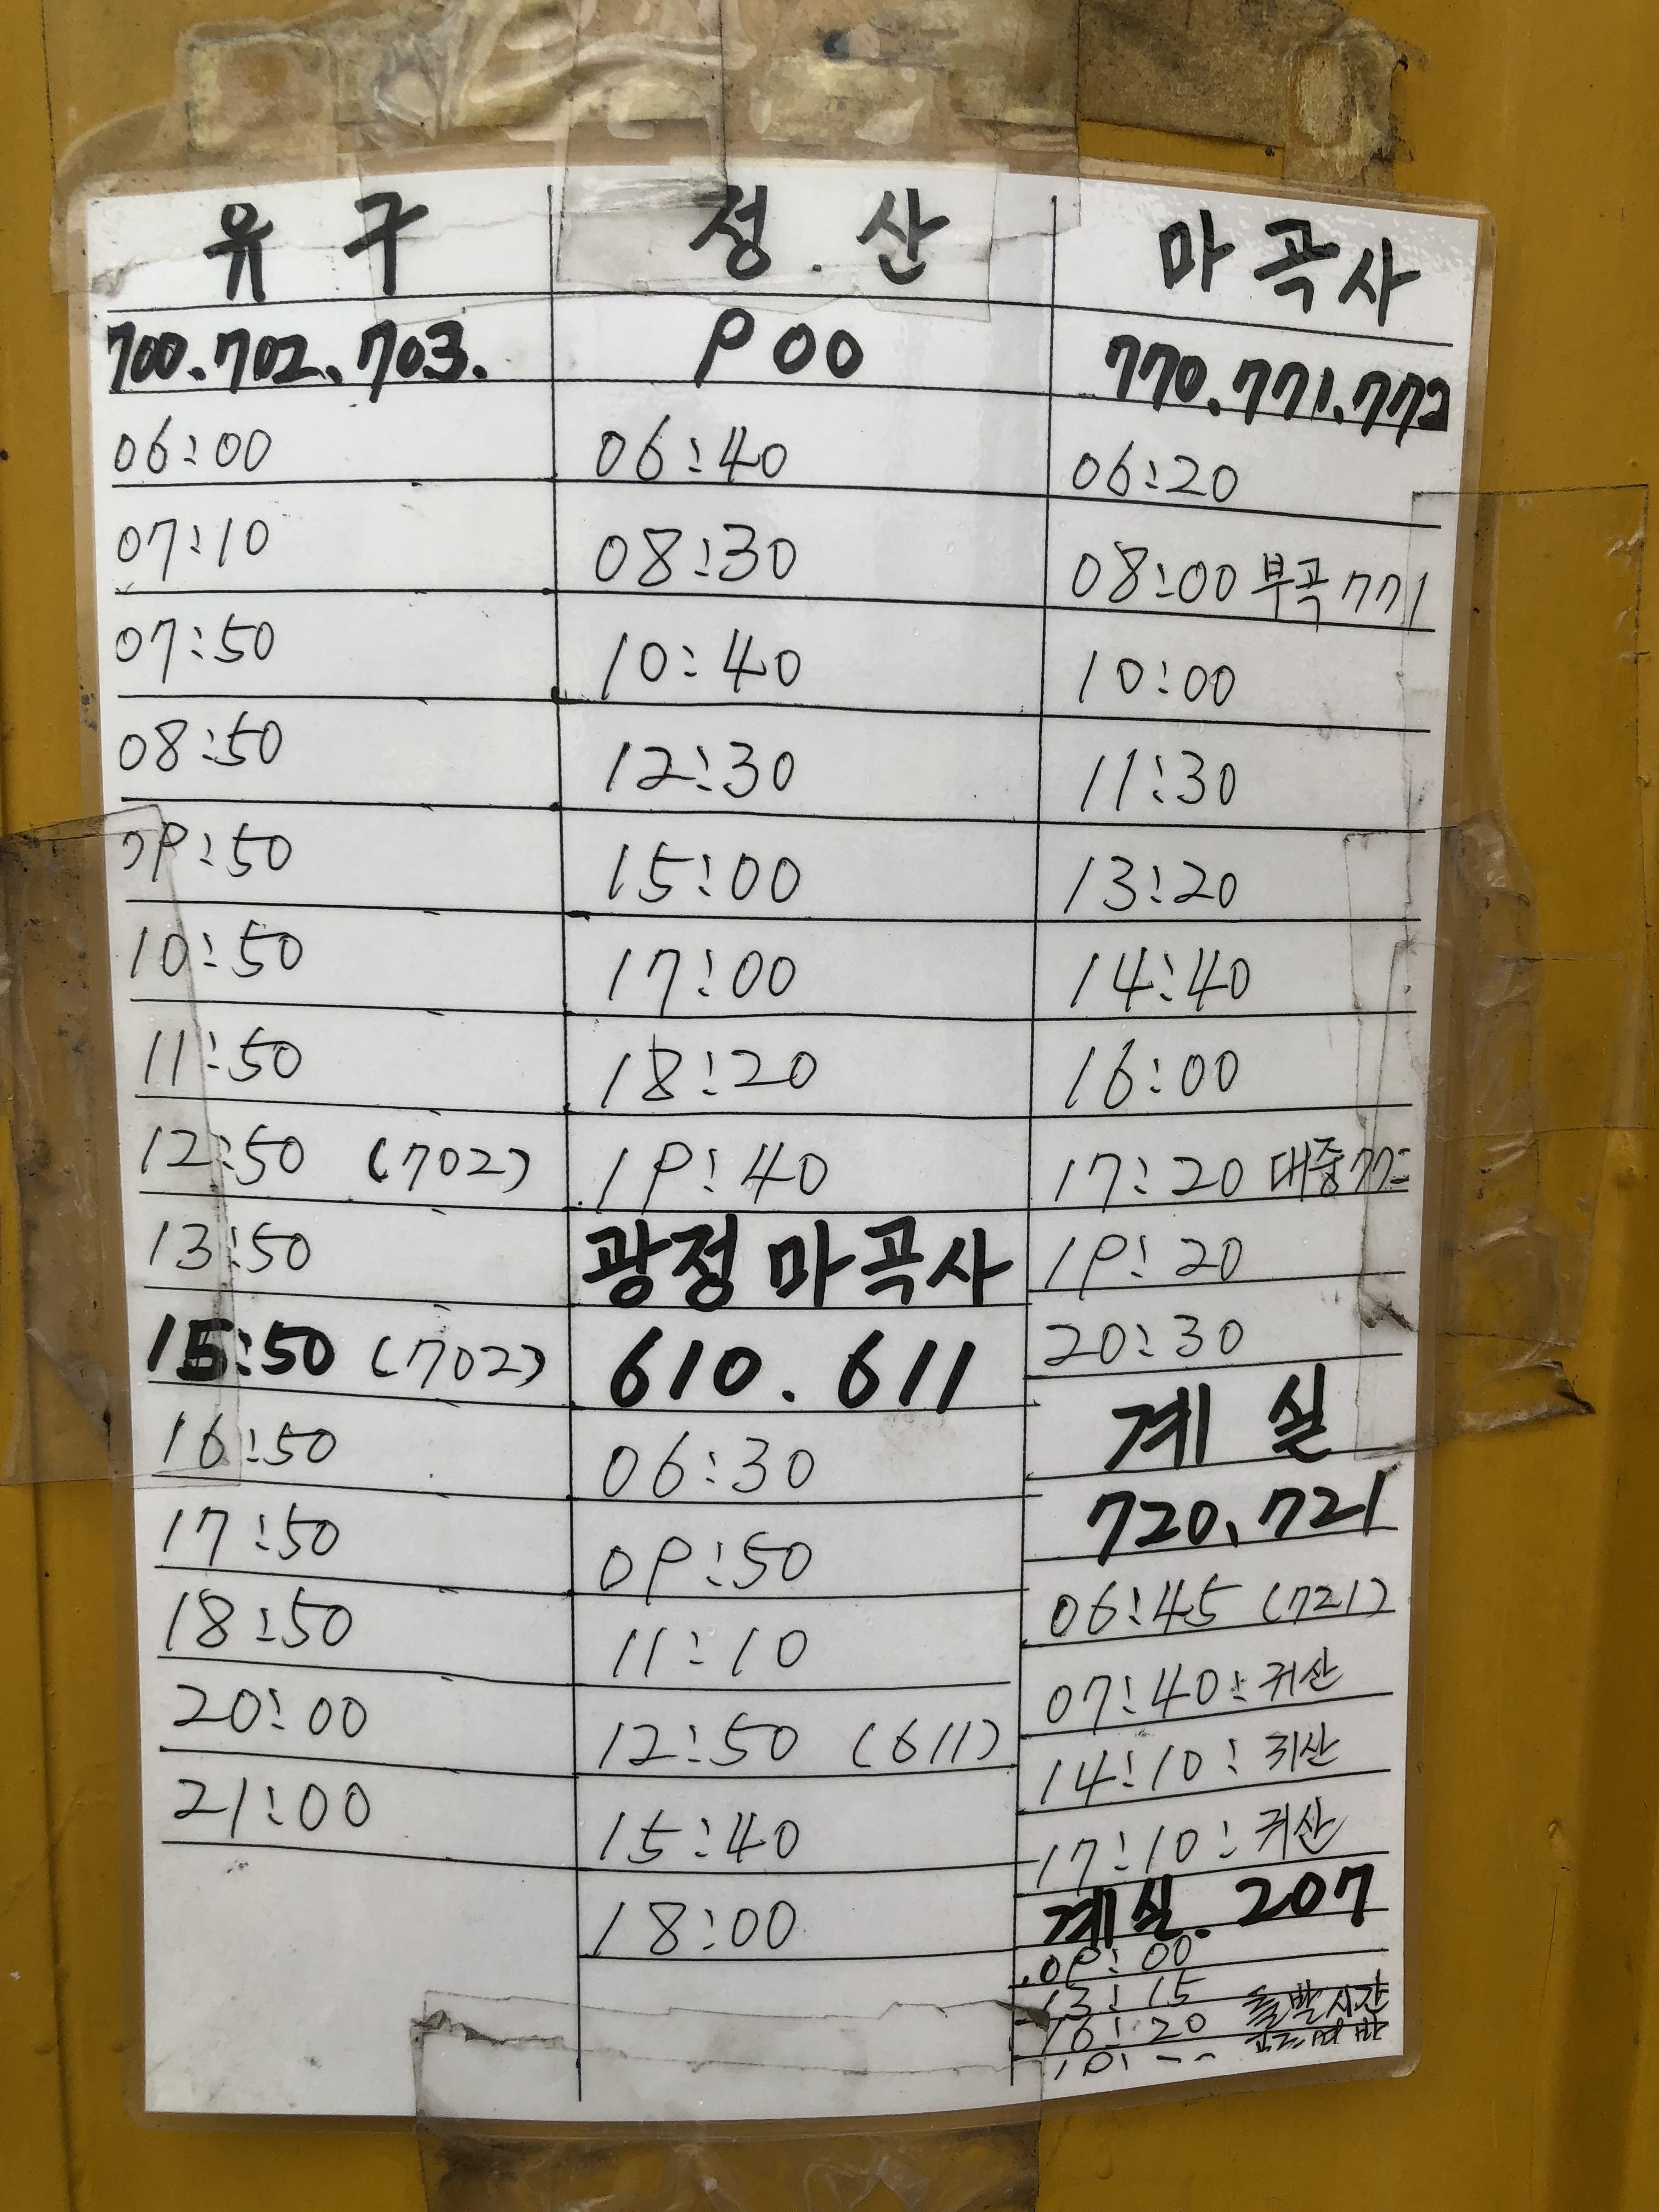 유구
700.702.703.
06:00
07:10
07:50
08:50
09:50
10:50
11:50
12:50 (702)
13:50
15:50 (702)
16:50
17:50
18:50
20:00
21:00
성.산
900
06:40
08:30
10:40
12:30
15:00
17:00
18:20
19:40
광정 마곡사
610.611
06:30
09:50
11:10
12:50 (611)
15:40
18:00
마곡사
770.771.772
06:20
08:00 부곡 771
10:00
11:30
13:20
14:40
16:00
17:20 대중 772
19:20
20:30
계실
720.721
06:45 (721)
07:40: 귀산
14:10: 귀산
17:10: 귀산
계실.207
09:00
13:15
16:20 출발시간